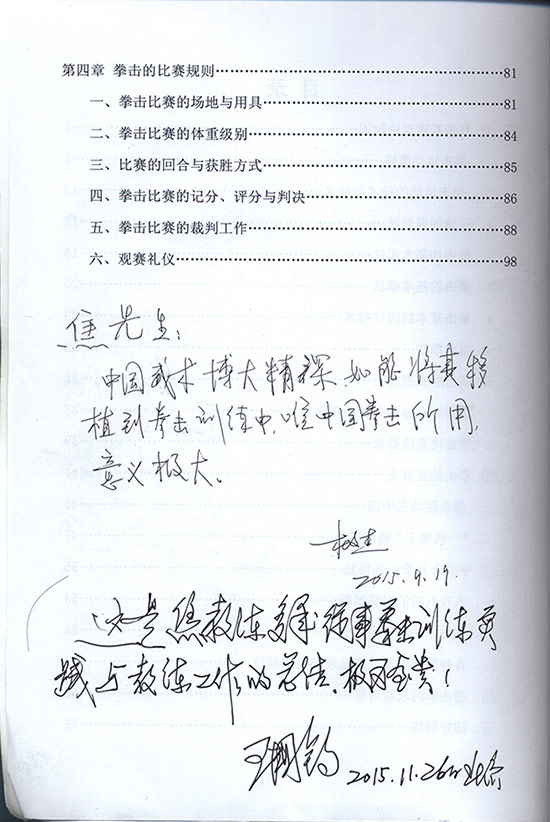 第四章 拳击的比赛规则……………………………………81
一、拳击比赛的场地与用具……………………………81
二、拳击比赛的体重级别………………………………84
三、比赛的回合与获胜方式……………………………85
四、拳击比赛的记分、评分与判决……………………86
五、拳击比赛的裁判工作………………………………88
六、观赛礼仪……………………………………………98
焦先生：
中国武术博大精深，如能将其移
植到拳击训练中，唯中国拳击所用，
意义极大。
2015.9.19.
这是焦教练多年从事拳击训练实
践与教练工作的总结，极可宝贵！
王国钧 2015.11.26于北京